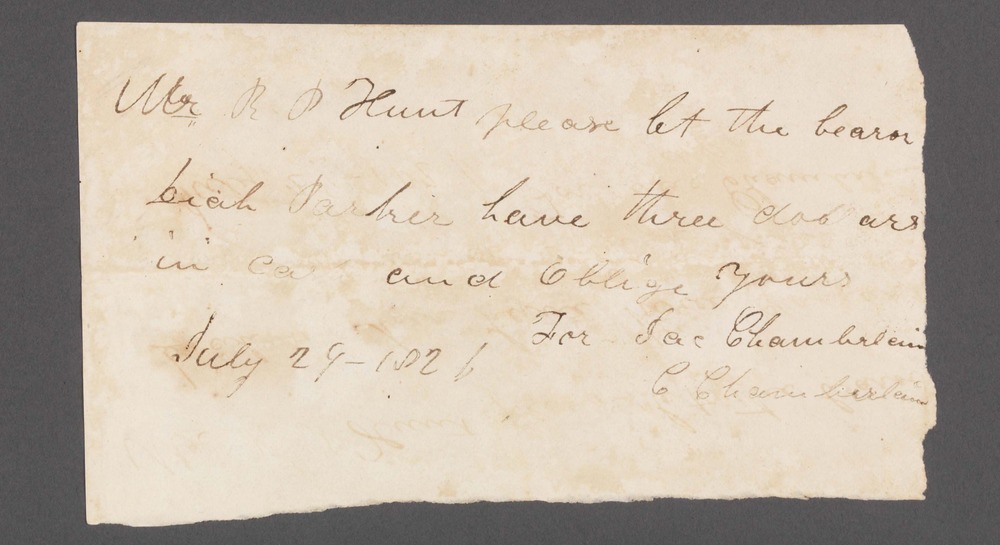 Mr R P Hunt please let the bearor
biah Parker have three dol ars
in ca and Oblige yours
July 29-1826 For Jac Chamberlain
C Chamberlain